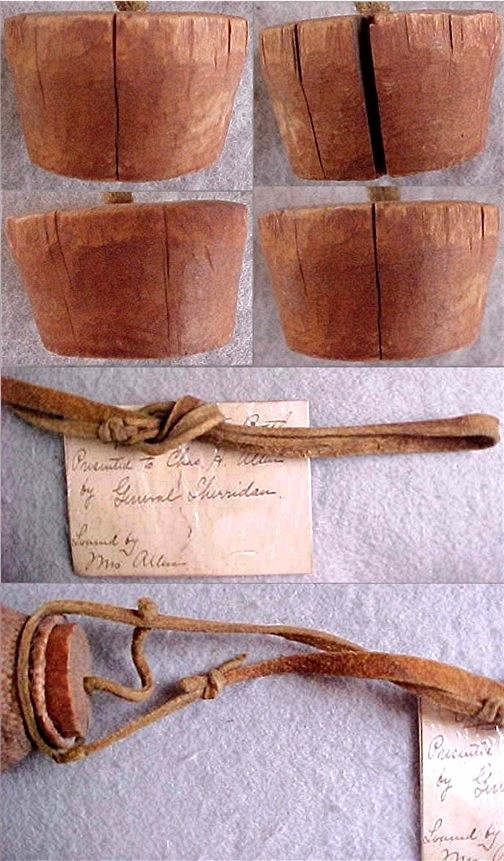 Presented to Chas. H. Allen
by General Sherridan.
Loaned by
Mrs Allen
Presented
by Gen
Loaned by
Mrs